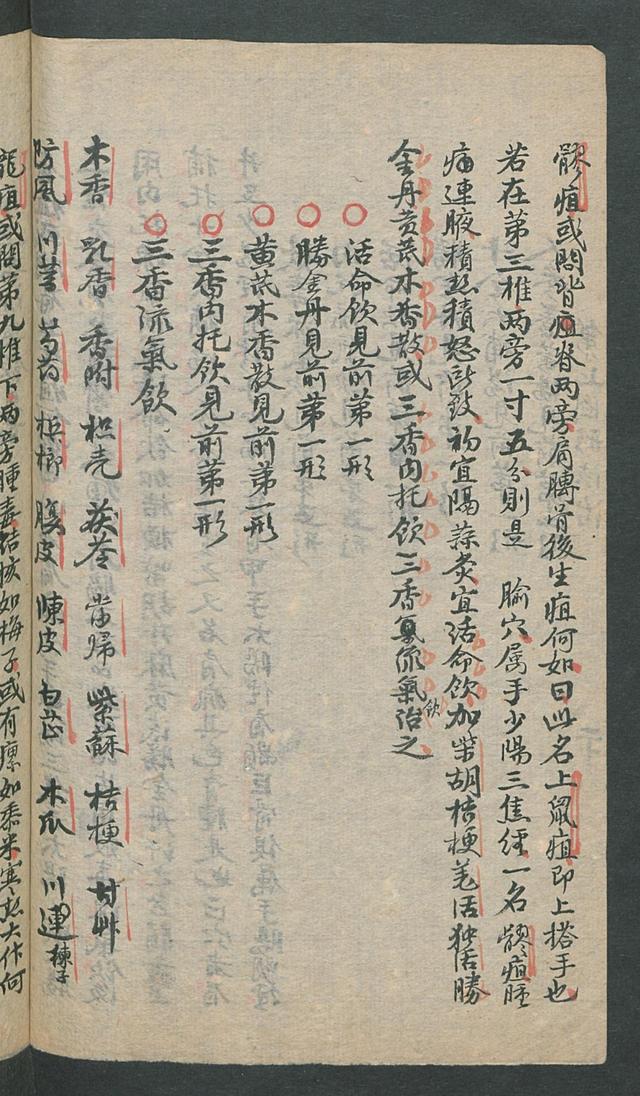 髎疽或問背疽脊兩旁肩膊骨後生疽何如曰此名上鼠疽即上搭手也
若在第三椎兩旁一寸五分則是 腧穴属手少陽三焦經一名髎疽腫
痛連腋積熱積怒所致初宜隔蒜灸宜活命飲加柴胡桔梗羌活独活勝
金丹黄茋木香散或三香内托飲三香流氣飲治之
活命飲見前第一形
勝金丹見前第一形
黄茋木香散見前第一形
三香内托飲見前第一形
三香流氣飲
木香 乳香 香附 枳壳 茯苓 當歸 紫蘇 桔梗 甘艸
防風 川芎 芍药 梹榔 腹皮 陳皮 白芷 木瓜 川連 楝子
龍疽或問第九椎下兩旁腫毒結核如梅子或有瘰如黍米寒热大作何